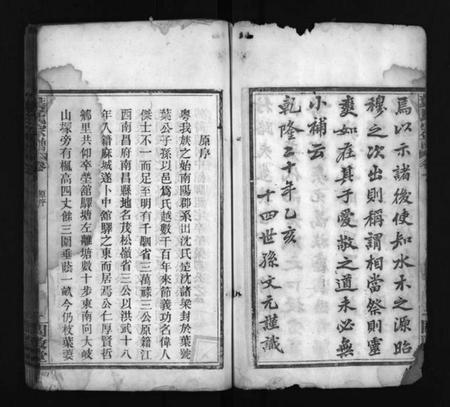 焉以示諸後使知水木之源昭
穆之次出則稱謂相當祭則靈
爽如在其于愛敬之道未必無
小補云
乾隆二十年乙亥
十四世孫文元謹識
原序
粤我族之始南陽郡系出沈氏楚沈諸梁封於葉號
葉公子孫以邑爲氏越數千百年來節義功名偉人
傑士不一而足至明有千駟省三萬蘇三公原籍江
西南昌府南昌縣地名茂松嶺省三公以洪武十八
年入籍麻城遂卜中舘驛之東而居焉公仁厚賢哲
鄉里共仰卒塋舘驛塘左離塘數十步東南向大岐
山塚旁有楓高四丈餘三圍垂蔭一畝今仍枝葉婆
原序